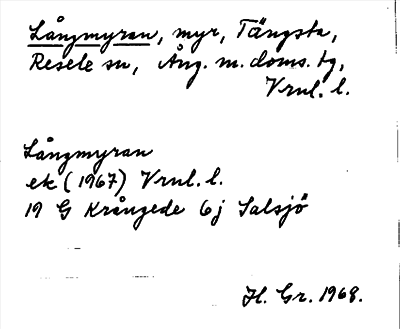 Långmyran, myr, Tängsta,
Resele sn, Ång. m. doms. tg,
Vrnl. l.
Långmyran
ek (1967) Vrnl. l.
19 G Krångede 6j Salsjö
H. Gr. 1968.